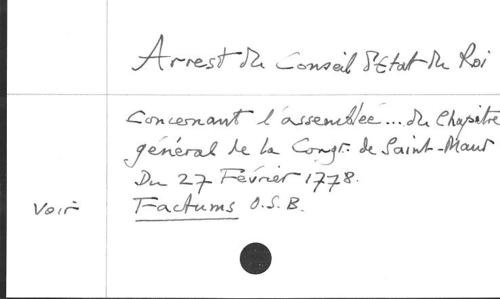 Arrest du Conseil d'Etat du Roi
Concernant l'assemblée... du Chapitre
général de la Congr. de Saint-Maur
Du 27 Février 1778.
Voir Factums O.S.B.